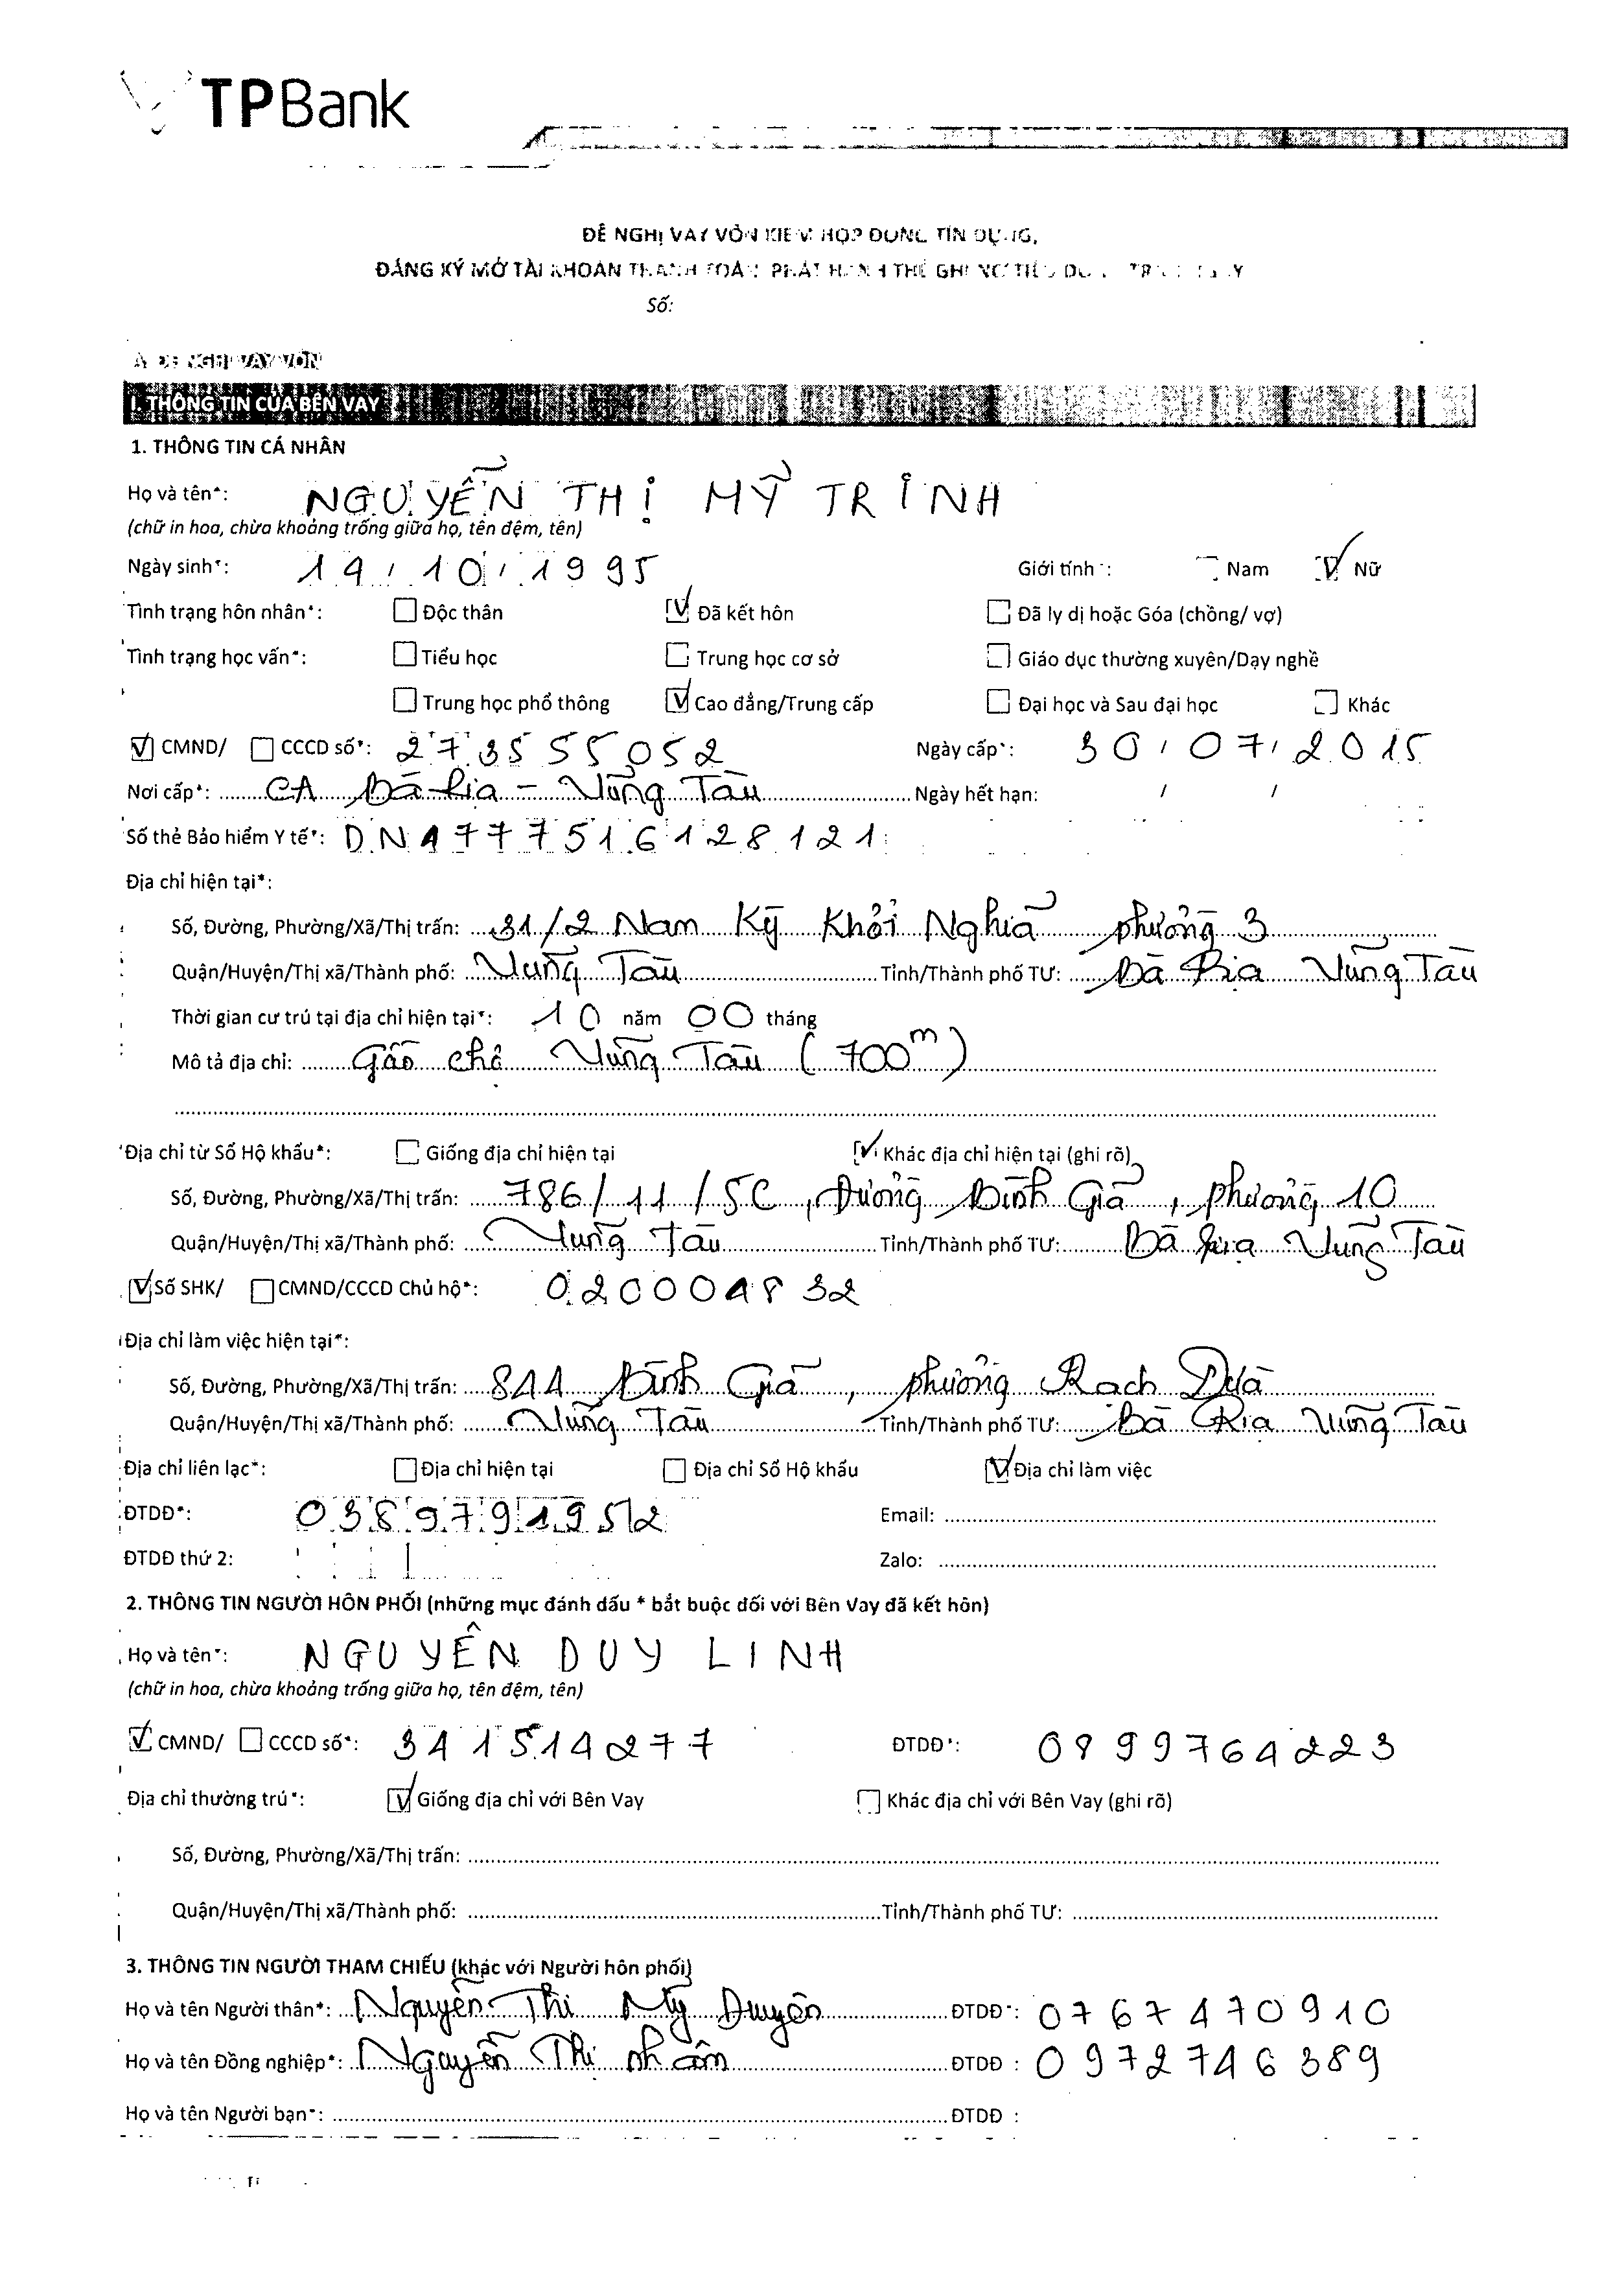 TPBank
ĐỀ NGHỊ VAY VỐN KIÊM HỢP ĐỒNG TÍN DỤNG,
ĐĂNG KÝ MỞ TÀI KHOẢN THANH TOÁN, PHÁT HÀNH THẺ GHI NỢ
Số:
A. ĐỀ NGHỊ VAY VỐN
I. THÔNG TIN CỦA BÊN VAY
1. THÔNG TIN CÁ NHÂN
Họ và tên*: NGUYỄN THỊ MỸ TRINH
(chữ in hoa, chừa khoảng trống giữa họ, tên đệm, tên)
Ngày sinh*: 19/10/1995 Giới tính*: Nam Nữ
Tình trạng hôn nhân*: Độc thân Đã kết hôn Đã ly dị hoặc Góa (chồng/ vợ)
Tình trạng học vấn*: Tiểu học Trung học cơ sở Giáo dục thường xuyên/Dạy nghề
Trung học phổ thông Cao đẳng/Trung cấp Đại học và Sau đại học Khác
CMND/ CCCD số*: 273555052 Ngày cấp*: 30/07/2015
Nơi cấp*: CA Bà Rịa - Vũng Tàu Ngày hết hạn: / /
Số thẻ Bảo hiểm Y tế*: DN4777516128121
Địa chỉ hiện tại*:
Số, Đường, Phường/Xã/Thị trấn: 31/2 Nam Kỳ Khởi Nghĩa phường 3
Quận/Huyện/Thị xã/Thành phố: Vũng Tàu Tỉnh/Thành phố TƯ: Bà Rịa Vũng Tàu
Thời gian cư trú tại địa chỉ hiện tại*: 10 năm 00 tháng
Mô tả địa chỉ: Gần chợ Vũng Tàu (700m)
Địa chỉ từ Sổ Hộ khẩu*: Giống địa chỉ hiện tại Khác địa chỉ hiện tại (ghi rõ)
Số, Đường, Phường/Xã/Thị trấn: 786/11/5C, Đường Bình Giã, phường 10
Quận/Huyện/Thị xã/Thành phố: Vũng Tàu Tỉnh/Thành phố TƯ: Bà Rịa Vũng Tàu
Số SHK/ CMND/CCCD Chủ hộ*: 020004832
Địa chỉ làm việc hiện tại*:
Số, Đường, Phường/Xã/Thị trấn: 844 Bình Giã, phường Rạch Dừa
Quận/Huyện/Thị xã/Thành phố: Vũng Tàu Tỉnh/Thành phố TƯ: Bà Rịa Vũng Tàu
Địa chỉ liên lạc*: Địa chỉ hiện tại Địa chỉ Sổ Hộ khẩu Địa chỉ làm việc
ĐTDĐ*: 0389791952 Email:
ĐTDĐ thứ 2: Zalo:
2. THÔNG TIN NGƯỜI HÔN PHỐI (những mục đánh dấu * bắt buộc đối với Bên Vay đã kết hôn)
Họ và tên*: NGUYÊN DUY LINH
(chữ in hoa, chừa khoảng trống giữa họ, tên đệm, tên)
CMND/ CCCD số*: 341514277 ĐTDĐ*: 0899764223
Địa chỉ thường trú*: Giống địa chỉ với Bên Vay Khác địa chỉ với Bên Vay (ghi rõ)
Số, Đường, Phường/Xã/Thị trấn:
Quận/Huyện/Thị xã/Thành phố: Tỉnh/Thành phố TƯ:
3. THÔNG TIN NGƯỜI THAM CHIẾU (khác với Người hôn phối)
Họ và tên Người thân*: Nguyễn Thị Mỹ Duyên ĐTDĐ*: 0767470910
Họ và tên Đồng nghiệp*: Nguyễn Thị Nhâm ĐTDĐ : 0972746389
Họ và tên Người bạn*: ĐTDĐ :